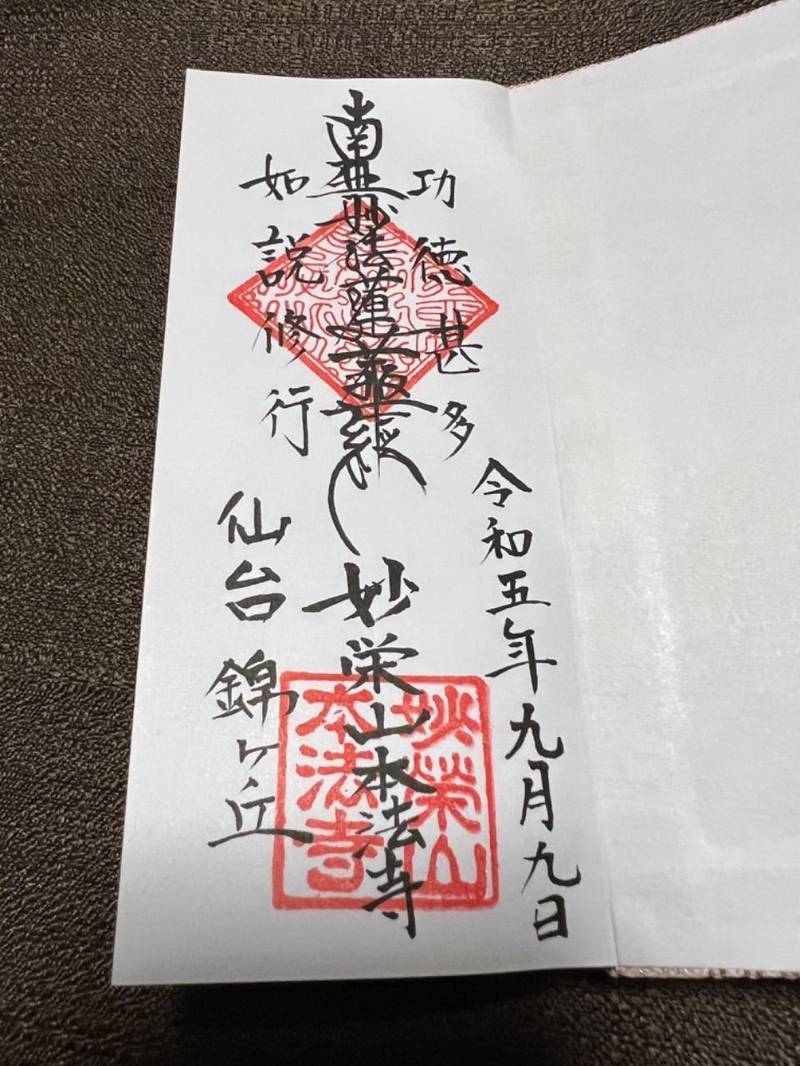 功徳甚多
令和五年九月九日
南無妙法蓮華経
妙栄山本法寺
如説修行
仙台錦ヶ丘
妙榮山
本法寺